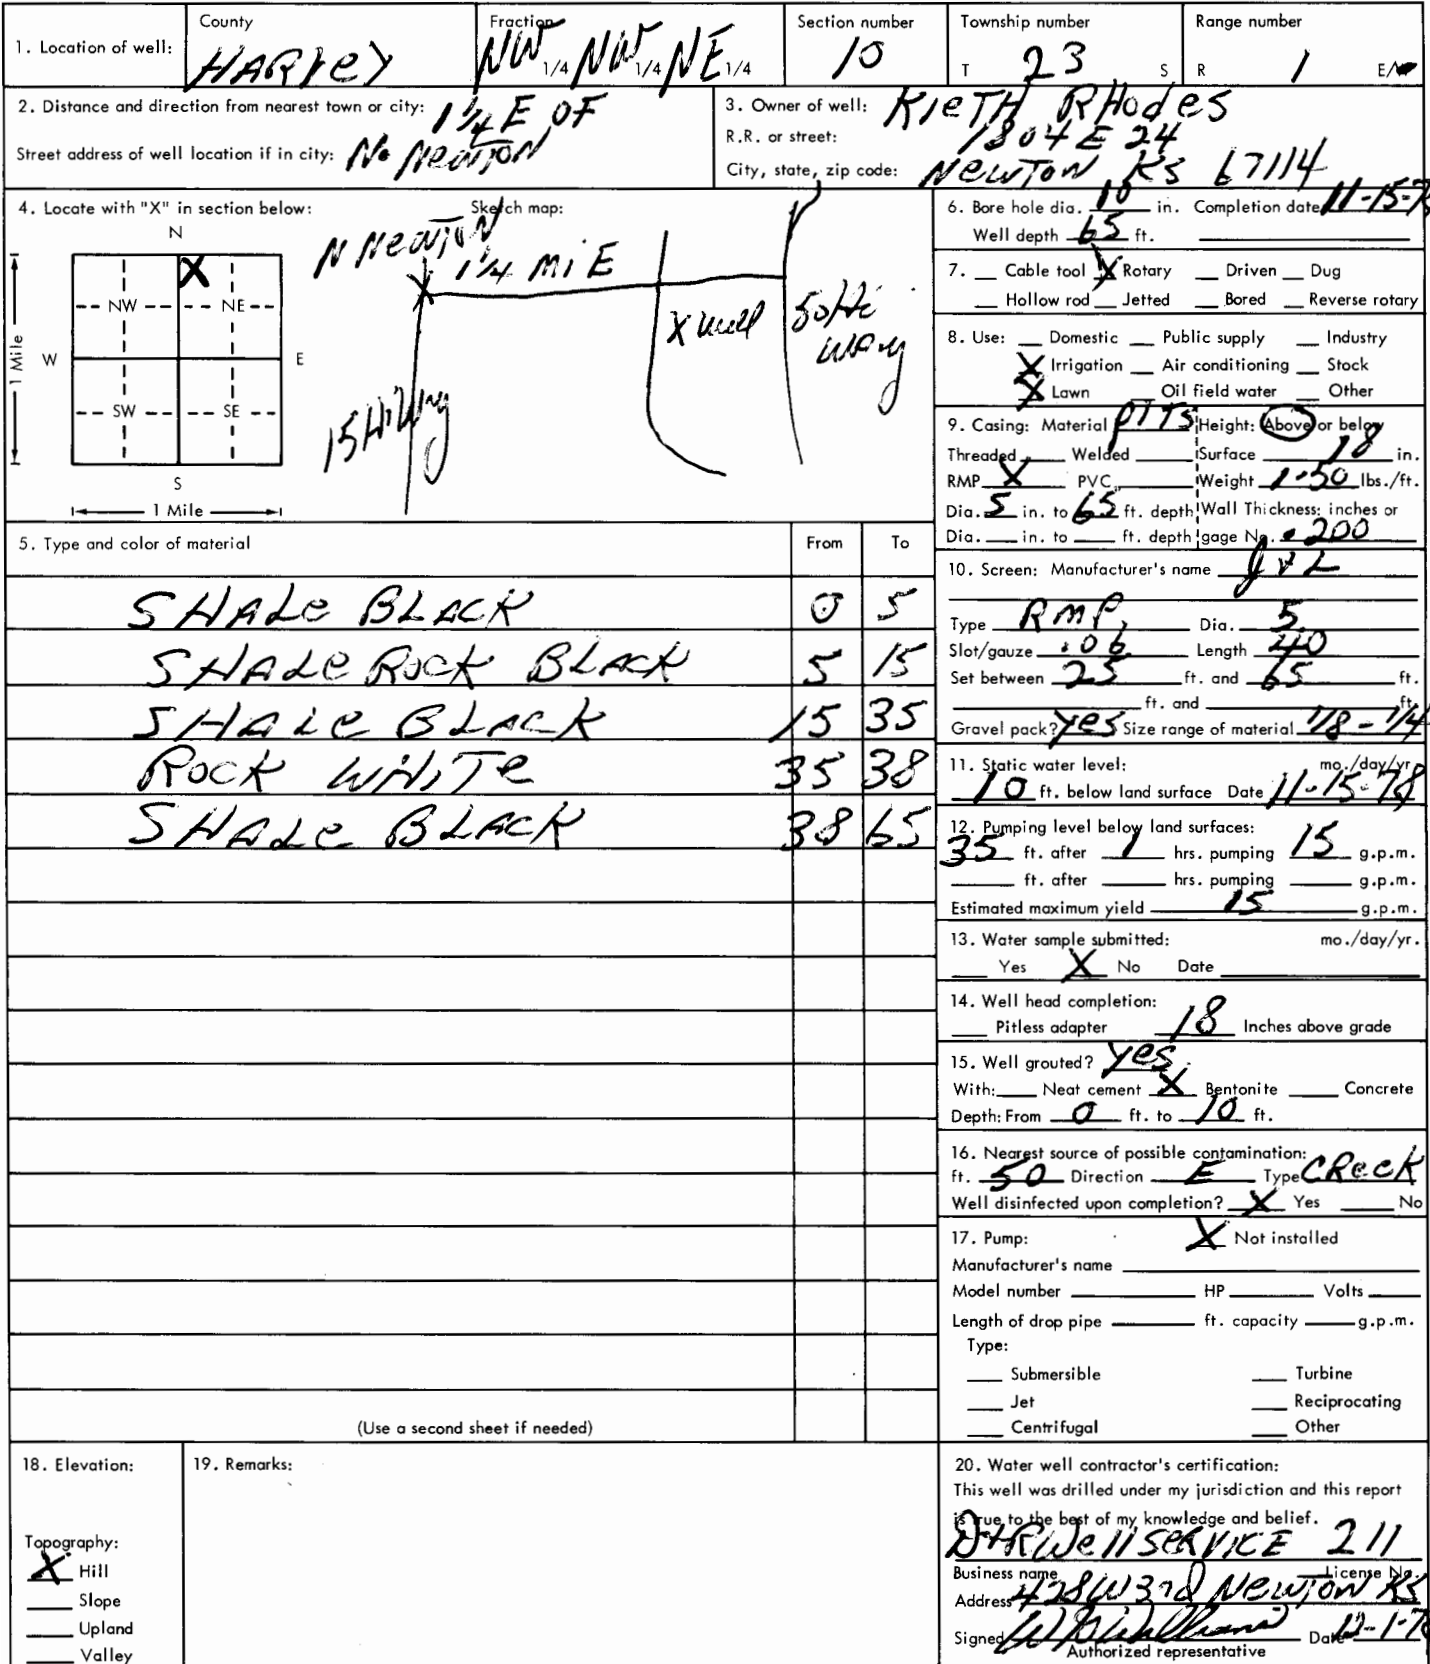 1. Location of well: County HARVEY Fraction NW 1/4 NW 1/4 NE 1/4 Section number 10 Township number T 23 S Range number R 1 E/
2. Distance and direction from nearest town or city: 1 1/4 E OF
Street address of well location if in city: No NewTON
3. Owner of well: KIETH RHodes
R.R. or street: 1804 E 24
City, state, zip code: NewTON KS 67114
4. Locate with "X" in section below: Sketch map:
N
NW NE
W E
SW SE
S
1 Mile
1 Mile
X
N NewTON
1 1/4 mi E
X well
50 Hi
way
15 HiWay
5. Type and color of material From To
SHALe BLACK 0 5
SHALe ROCK BLACK 5 15
SHALe BLACK 15 35
ROCK WHITe 35 38
SHALe BLACK 38 65
(Use a second sheet if needed)
6. Bore hole dia. 10 in. Completion date 11-15-7
Well depth 65 ft.
7. Cable tool X Rotary Driven Dug
Hollow rod Jetted Bored Reverse rotary
8. Use: Domestic Public supply Industry
X Irrigation Air conditioning Stock
X Lawn Oil field water Other
9. Casing: Material Height: Above or below
Threaded Welded Surface 18 in.
RMP X PVC Weight 1.50 lbs./ft.
Dia. 5 in. to 65 ft. depth Wall Thickness: inches or
Dia. in. to ft. depth gage No. .200
10. Screen: Manufacturer's name
Type RMP Dia. 5
Slot/gauze .06 Length 40
Set between 25 ft. and 65 ft.
ft. and ft.
Gravel pack? Yes Size range of material 1/8 - 1/4
11. Static water level: mo./day/yr.
10 ft. below land surface Date 11-15-78
12. Pumping level below land surfaces:
35 ft. after 1 hrs. pumping 15 g.p.m.
ft. after hrs. pumping g.p.m.
Estimated maximum yield 15 g.p.m.
13. Water sample submitted: mo./day/yr.
Yes X No Date
14. Well head completion:
Pitless adapter 18 Inches above grade
15. Well grouted? Yes
With: Neat cement X Bentonite Concrete
Depth: From 0 ft. to 10 ft.
16. Nearest source of possible contamination:
ft. 50 Direction E Type CReeK
Well disinfected upon completion? X Yes No
17. Pump: X Not installed
Manufacturer's name
Model number HP Volts
Length of drop pipe ft. capacity g.p.m.
Type:
Submersible Turbine
Jet Reciprocating
Centrifugal Other
18. Elevation:
Topography:
X Hill
Slope
Upland
Valley
19. Remarks:
20. Water well contractor's certification:
This well was drilled under my jurisdiction and this report
is true to the best of my knowledge and belief.
D+R Well SERVICE 211
Business name License No.
Address 428 W 3rd NewTON KS
Signed Date 12-1-7
Authorized representative